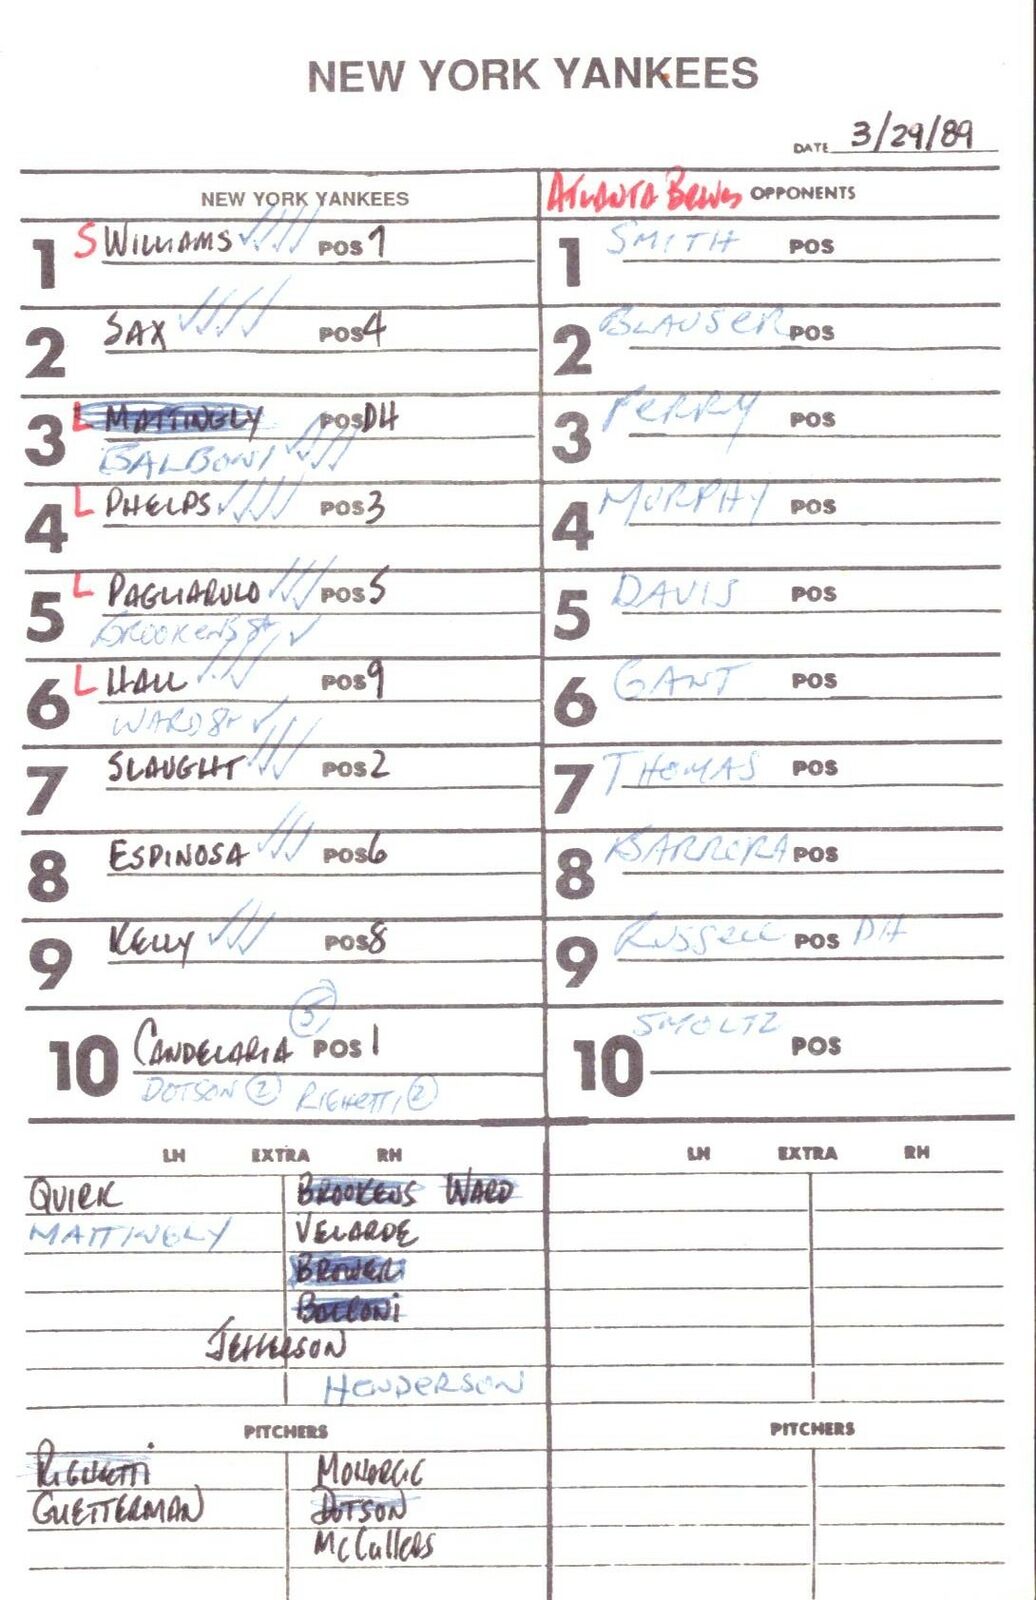 NEW YORK YANKEES
DATE 3/29/89
NEW YORK YANKEES
ATLANTA BRAVES OPPONENTS
1 S WILLIAMS POS 7
1 SMITH POS
2 SAX POS 4
2 BLAUSER POS
3 L MATTINGLY POS DH
BALBONI
3 PERRY POS
4 L PHELPS POS 3
4 MURPHY POS
5 L PAGLIARULO POS 5
BROOKENS 8+
5 DAVIS POS
6 L HALL POS 9
WARD 8+
6 GANT POS
7 SLAUGHT POS 2
7 THOMAS POS
8 ESPINOSA POS 6
8 BARRERA POS
9 KELLY POS 8
9 RUSSELL POS DH
10 CANDELARIA 5 POS 1
DOTSON 2 RIGHETTI 2
10 SMOLTZ POS
LH EXTRA RH
QUIRK
MATTINGLY
BROOKENS WARD
VELARDE
BROWER
BALBONI
JEFFERSON
HENDERSON
PITCHERS
RIGHETTI
GUETTERMAN
MOHORCIC
DOTSON
McCULLERS
LH EXTRA RH
PITCHERS